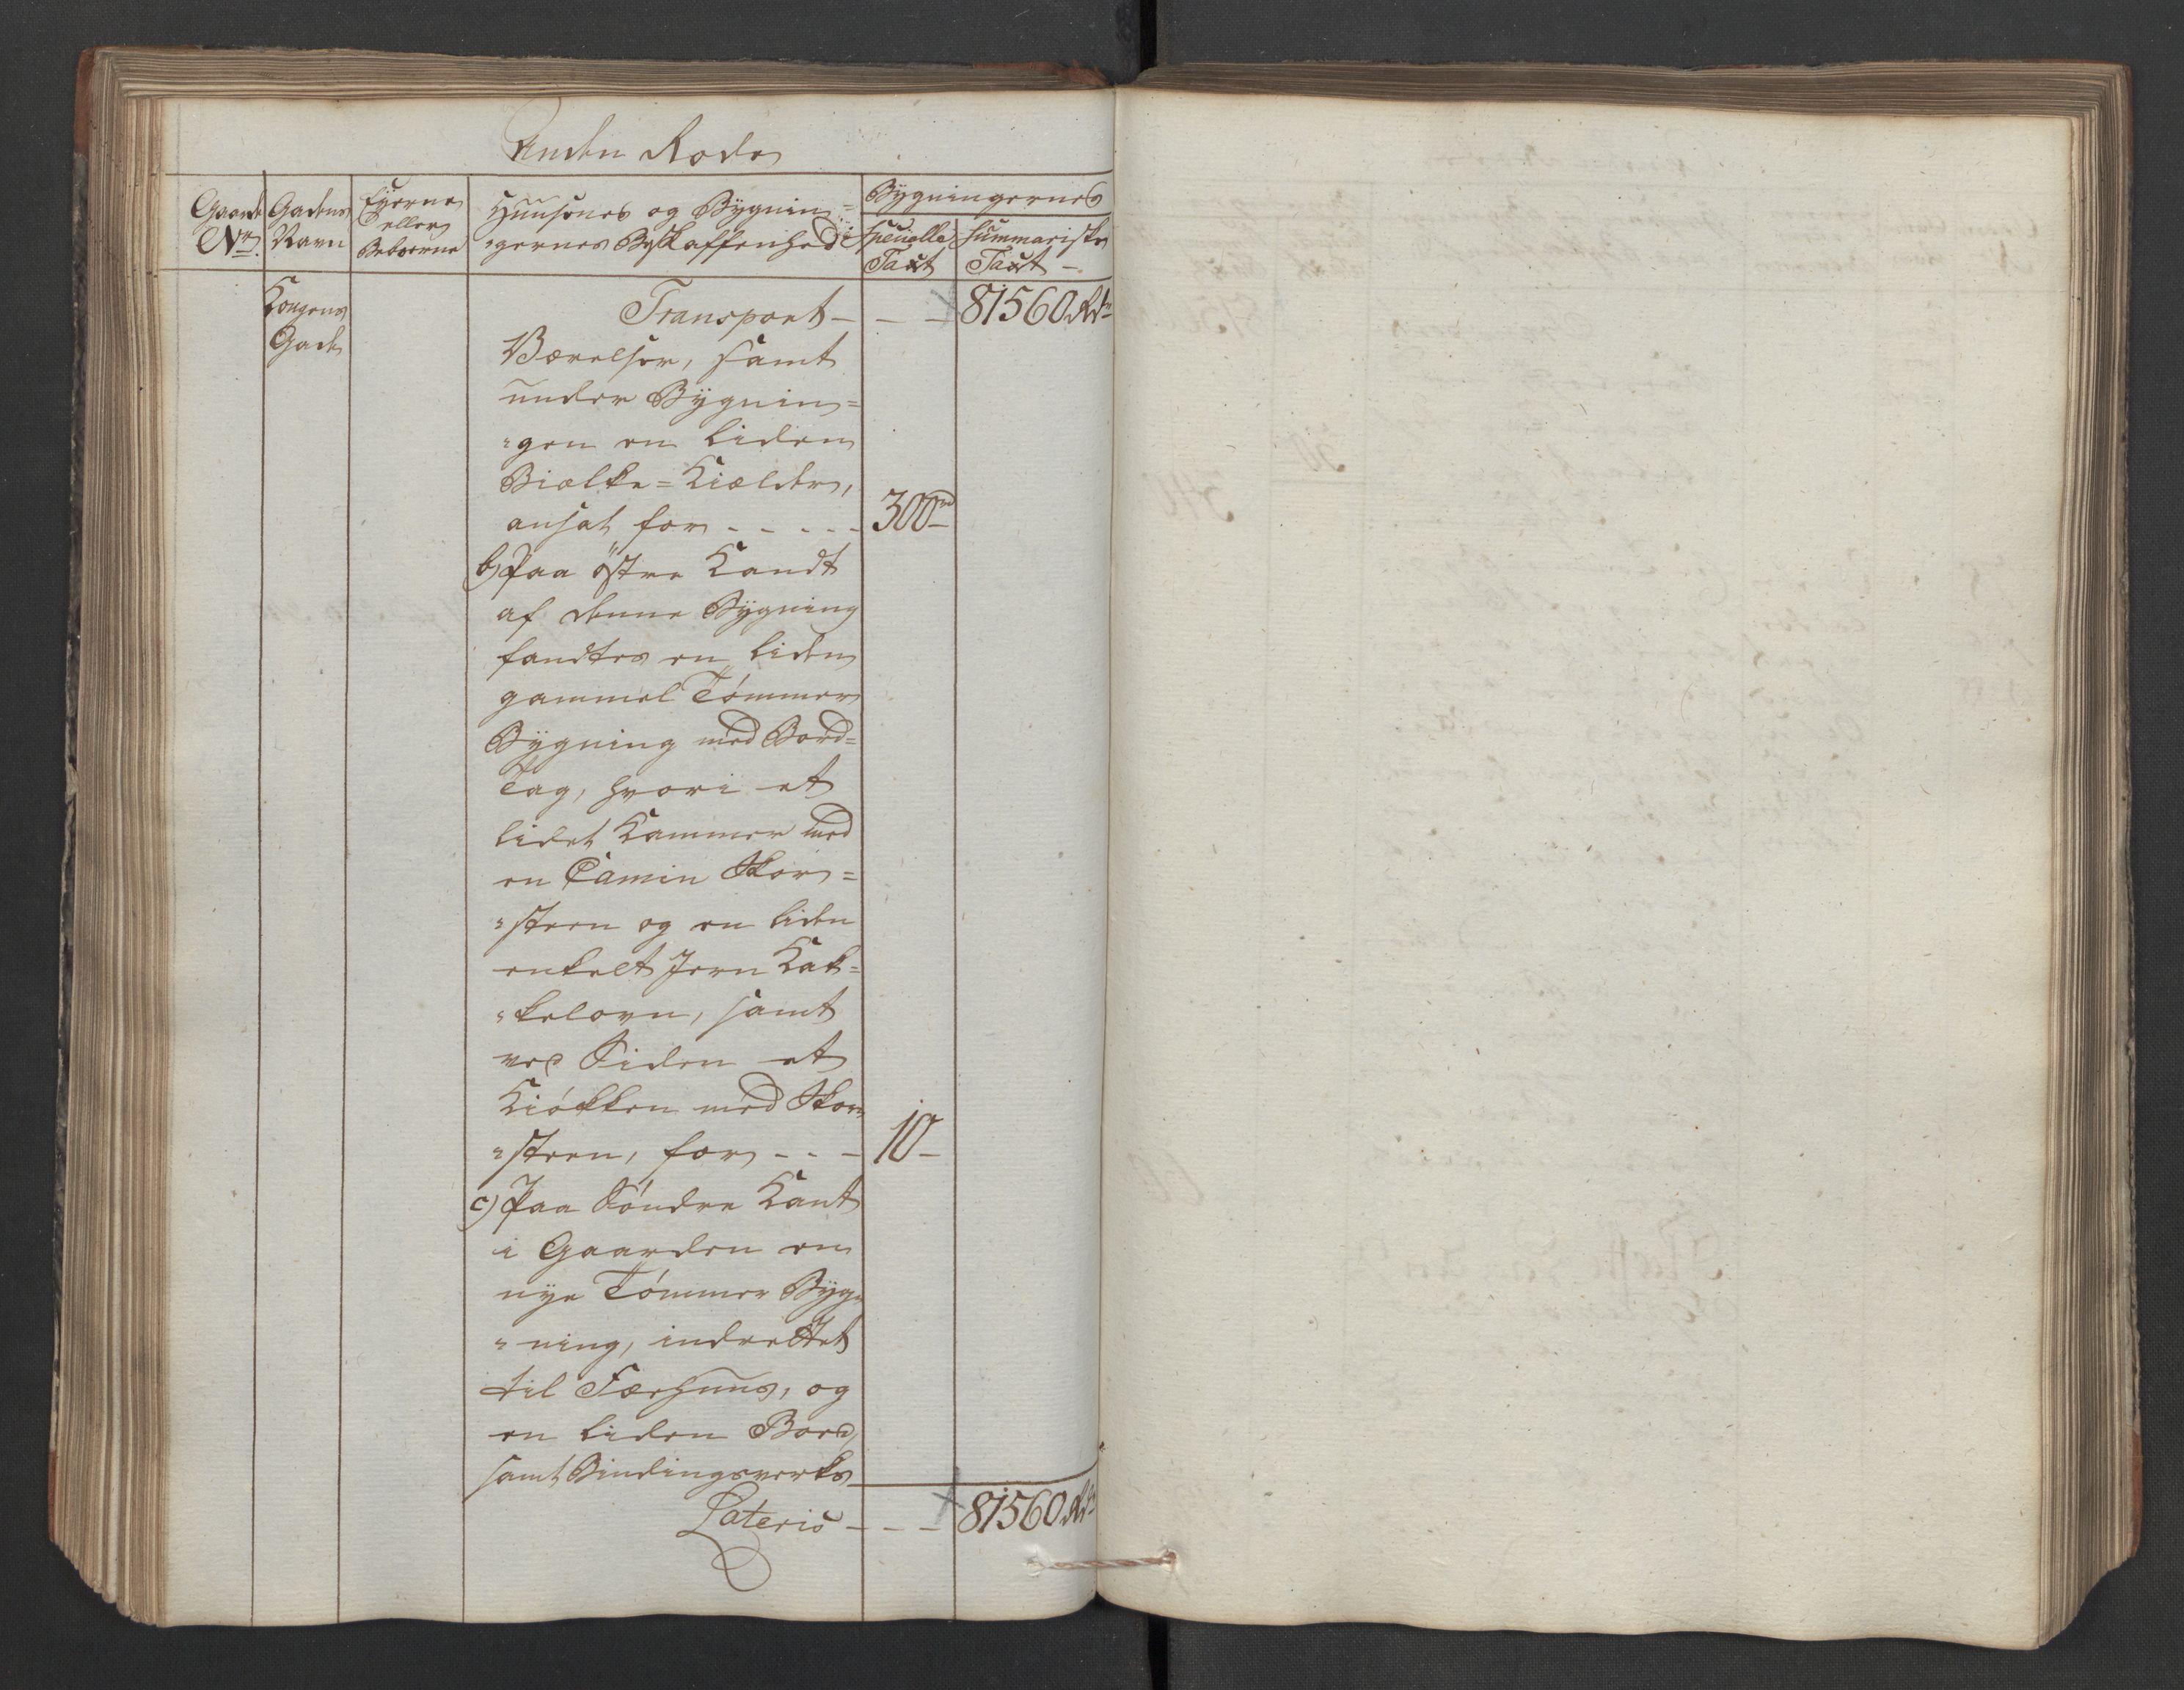 Anden Rode
Gaards No.
Gadens Navn
Eyerne eller Beboerne
Huusenes og Bygnin=
=gernes Beskaffenhed
Bygningernes
Specielle Taxt
Summariske Taxt
Kongens
Gade
Transport - - - 81560 Rdr
Værelser, samt
under Bygnin=
=gen en liden
Bielke=Kielder,
ansat for - - - - - 300rd
b) Paa östre Kandt
af denne Bygning
fandtes en liden
gammel Tömmer
Bygning med Bord=
Tag, hvori et
lidet Kammer med
en Camin Skor=
=steen og en liden
enkelt Jern Kak=
=kelovn, samt
ved Siden et
Kiökken med Skor=
=steen, for - - - 10 -
c) Paa Söndre Kant
i Gaarden en
nye Tömmer Byg=
=ning, indrettet
til Færhuus, og
en liden Bord,
samt Bindingsverks
Lateris - - - 81560 Rdr